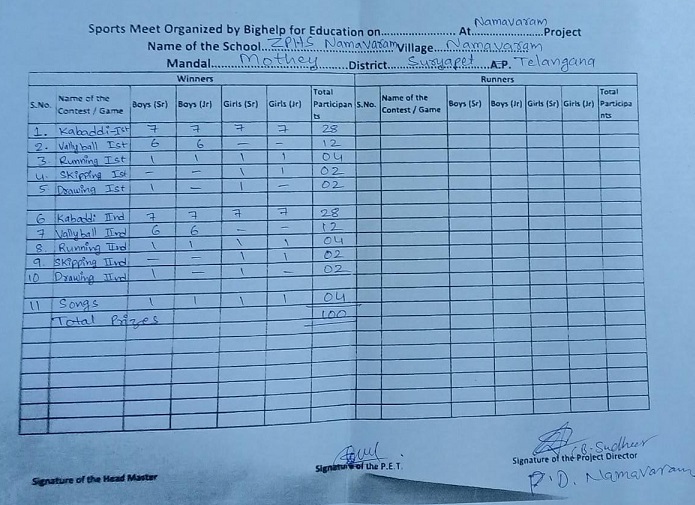 Namavaram
Sports Meet Organized by Bighelp for Education on.................... At....................Project
Name of the School...ZPHS Namavaram Village...Namavaram
Mandal...Mothey...District...Suryapet...A.P. Telangana
Winners Runners
S.No. Name of the Contest / Game Boys (Sr) Boys (Jr) Girls (Sr) Girls (Jr) Total Participants S.No. Name of the Contest / Game Boys (Sr) Boys (Jr) Girls (Sr) Girls (Jr) Total Participants
1. Kabaddi-Ist 7 7 7 7 28
2. Vallyball Ist 6 6 - - 12
3 Running Ist 1 1 1 1 04
4. Skipping Ist - - 1 1 02
5 Drawing Ist 1 - 1 - 02
6 Kabaddi IInd 7 7 7 7 28
7 Vallyball IInd 6 6 - - 12
8. Running IInd 1 1 1 1 04
9. Skipping IInd - - 1 1 02
10 Drawing IInd 1 - 1 - 02
11 Songs 1 1 1 1 04
Total Prizes 100
(B. Sudheer
Signature of the Head Master Signature of the P.E.T. Signature of the Project Director
P.D. Namavaram